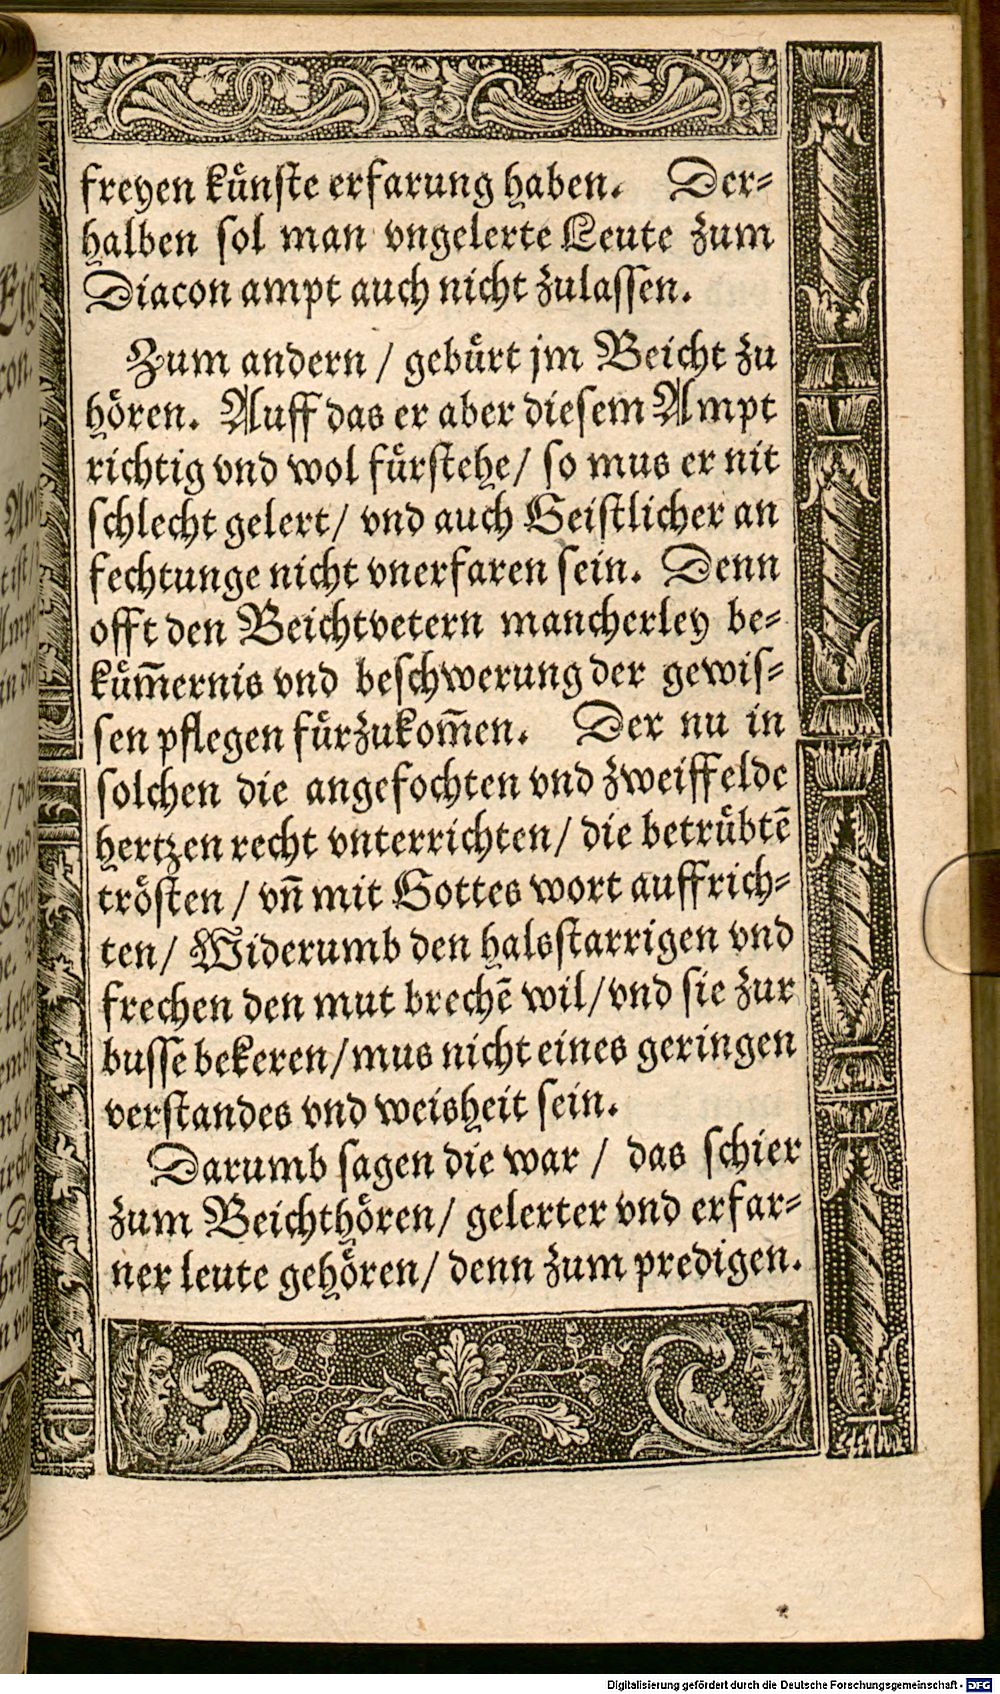 freyen kůnste erfarung haben. Der-
halben sol man vngelerte Leute zum
Diacon ampt auch nicht zulassen.
Zum andern / gebůrt jm Beicht zu
hören. Auff das er aber diesem Ampt
richtig vnd wol fůrstehe / so mus er nit
schlecht gelert / vnd auch Geistlicher an
fechtunge nicht vnerfaren sein. Denn
offt den Beichtvetern mancherley be-
kům̄ernis vnd beschwerung der gewis-
sen pflegen fůrzukom̄en. Der nu in
solchen die angefochten vnd zweiffelde
hertzen recht vnterrichten / die betrůbtē
trösten / vn̄ mit Gottes wort auffrich-
ten / Widerumb den halsstarrigen vnd
frechen den mut brechē wil / vnd sie zur
busse bekeren / mus nicht eines geringen
verstandes vnd weisheit sein.
Darumb sagen die war / das schier
zum Beichthören / gelerter vnd erfar-
ner leute gehören / denn zum predigen.
Digitalisierung gefördert durch die Deutsche Forschungsgemeinschaft - DFG